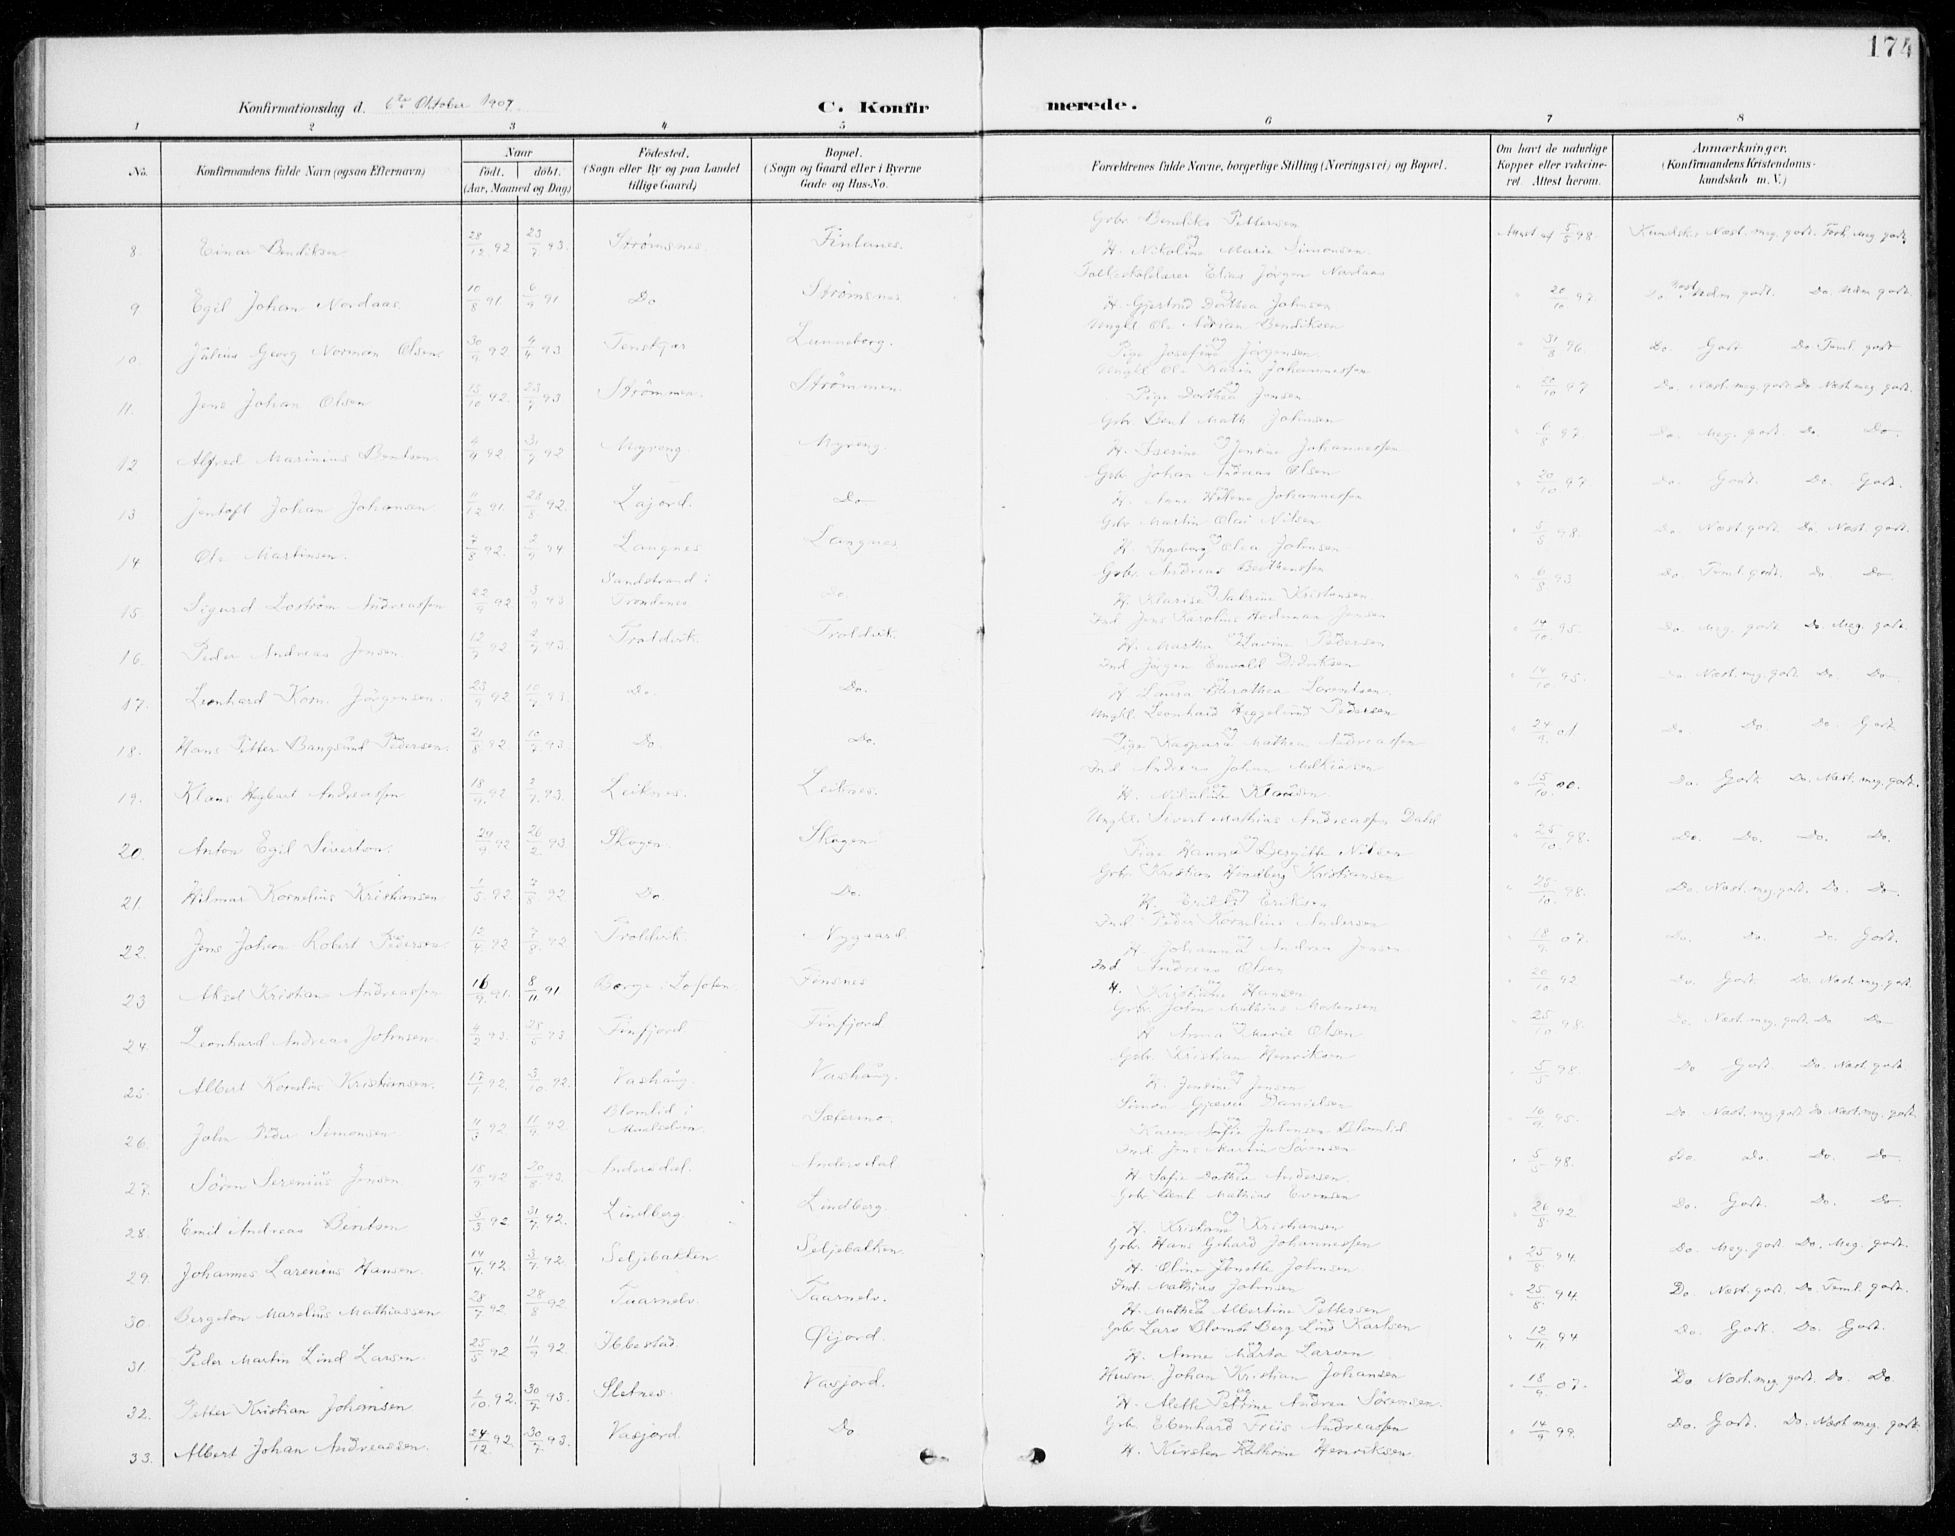 174
Konfirmationsdag d. 6te Oktober 1907.
C. Konfirmerede.
1 2 3 4 5 6 7 8
No.
Konfirmandens fulde Navn (ogsaa Efternavn)
Naar
födt. döbt.
(Aar, Maaned og Dag)
Födested.
(Sogn eller By og paa Landet
tillige Gaard)
Bopæl.
(Sogn og Gaard eller i Byerne
Gade og Hus-No.
Forældrenes fulde Navne, borgerlige Stilling (Næringsvei) og Bopæl.
Om havt de naturlige
Kopper eller vakcine-
ret. Attest herom.
Anmærkninger.
(Konfirmandens Kristendoms-
kundskab m. V.)
8. Einar Bendiksen 28/12 92 23/7 93. Strømsnes. Finlanes. Gbr. Bendiks Pettersen og H. Nikoline Marie Simonsen. Attest af 5/5 98. Kundsk. Næst. meg. godt. Forh. Meg. godt
9 Egil Johan Nordaas. 10/8 91 6/9 91 Do Strømsnes Elias Jörgen Nordaas og H. Gjertrud Dorthea Johnsen " 20/10 97.
10. Julius Georg Norman Olsen 30/9 92 4/4 93 Tenskjær Lunneborg. Ungkl. Ole Adrian Bendiksen og Pige Josefine Jörgensen. " 31/8 96. Do. Godt Do. Teml. godt
11. Jens Johan Olsen 15/10 92. 23/7 93 Strømmen. Strømmen. Ungkl. Ole Johannessen og Pige Dorthea Jensen " 20/10 97 Do. Næst. meg. godt Do Næst meg. godt.
12 Alfred Marinius Bentsen. 4/4 92. 31/7 92 Myreng. Myreng. Gbr. Bent Math. Johnsen og H. Jensine Johannessen " 6/8 97 Do. Meg. godt. Do Do.
13 Jentoft Johan Johansen 11/12 91. 28/8 92. Lajord. Do Gbr. Johan Andreas Olsen H. Anne Helene Johannessen " 20/10 97 Do. Godt. Do. Godt.
14. Ole Martinsen. 7/8 92. Langnes Langnes Gbr. Martin Olai Nilsen og H. Ingeborg Olea Johnsen " 5/5 98. Do. Næst. godt. Do. Næst. godt.
15. Sigurd Andreassen 22/9 92 3/9 93 Sandstrand i Trondenes Do. Gbr. Andreas og H. Klarise Sabrine Kristensen. " 6/8 93 Do Teml. godt. Do. Do
16. Peder Andreas Jensen. 12/7 92 93 Troldvik. Troldvik. Ind. Jens Karolius Jensen H. Martha Pedersen " 14/10 95. Do. Meg. godt. Do. Meg. godt.
17. Leonhard Korn. Jörgensen. 23/9 92 10/7 93. Do. Do. Ind. Jörgen Didriksen og H. Laura Dorothea Lorentsen. " 14/10 95. Do Næst. meg. godt Do. Do
18. Hans Petter Bangsund Pedersen. 21/8 92. 10/7 93 Do. Do. Ungkl. Leonhard Heggelund Pedersen og Pige Kaspara Mathea Andreassen " 24/9 01 Do. Do Do. Godt
19. Klaus Andreassen 18/9 92 2/7 93 Leiknes. Leiknes. Ind. Andreas Johan og H. Nikoline Klausen " 15/10 00. Do. Godt. Do. Næst. meg. godt.
20. Anton Egil Sivertsen. 24/9 92 26/2 93 Skogen. Skogen Ungkl. Sivert Mathias Andreassen Dahl og Pige Hanna Bergitte Nilsen " 25/10 98. Do. Do. Do. Do.
21. Hilmar Kornelius Kristiansen 1/5 92 7/8 92. Do Do. Gbr. Kristian Hindberg Kristiansen og H. Eriksen " 25/10 98. Do. Næst. meg. godt. Do. Do
22. Jens Johan Robert Pedersen 12/4 92 7/8 92 Troldvik. Nygaard Ind. Peder Kornelius Andersen og H. Johanna Andrea Jensen " 18/9 07. Do. Do. Do Godt.
23 Aksel Kristian Andreassen 16/9 91. 8/11 91 Borge i Lofoten Finsnes Ind. Andreas Olsen og H. Kristiane Hansen " 20/10 92 Do. Godt Do. Næst. meg. godt
24. Leonhard Andreas Johnsen 4/2 93. 28/5 93 Finfjord Finfjord Gbr. John Mathias Mortensen og H. Anna Marie Olsen " 25/10 98. Do. Næst. meg. godt. Do Do
25. Albert Kornelius Kristiansen. 17/7 92. 3/10 92. Vashaug. Vashaug. Gbr. Kristian Henriksen og H. Jensine Jensen " 5/5 98. Do Godt. Do. Næst. godt.
26. John Peder Simonsen 11/3 92 11/9 92 Blomlid i Maalselven Sætermo. Simon Danielsen og Karen Sofie Johnsen Blomlid " 16/9 95. Do Næst. meg. godt Do Næst. meg. godt.
27. Sören Serenius Jensen 18/9 92 20/8 93. Andersdal. Andersdal Ind. Jens Martin Sörensen og H. Sofie Dorthea Andersen. " 5/5 98. Do. Do. Do. Do
28. Emil Andreas Bentsen 5/3 92. 31/7 92. Lindberg. Lindberg Gbr. Bent Mathias Evensen og H. Kristiane Kristiansen " 26/8 92 Do. Godt. Do. Do.
29. Johannes Larenius Hansen. 14/4 92 3/7 92. Seljebakken Seljebakken. Gbr. Hans Gehard Johannessen H. Oline Jonette Johnsen " 25/8 94. Do. Meg. godt. Do. Meg. godt.
30. Bergeton Marelius Mathiassen 28/7 92 28/8 92 Taarnelv. Taarnelv. Ind. Mathias Johnsen og H. Mathea Albertine Pettersen " 25/8 94. Do. Næst. godt Do. Teml. godt.
31 Peder Martin Lind Larsen. 25/5 92 11/9 92. Ibbestad Øijord. Gbr. Lars Blomb Berg Lind Karlsen og H. Anne Marta Larsen " 12/11 94 Do. Godt. Do. Godt.
32. Petter Kristian Johansen 1/10 92. 30/7 93. Sletnes. Vasjord. Husm. Johan Kristian Johansen og H. Alette Pettrine Andrea Sörensen. " 18/9 07. Do Næst. meg. godt. Do. Do
33. Albert Johan Andreassen. 24/12 92. 30/7 93. Vasjord. Do Gbr. Ebenhard Friis Andreassen og H. Kirsten Kathrine Henriksen. " 14/9 99. Do. Godt. Do. Næst meg. godt